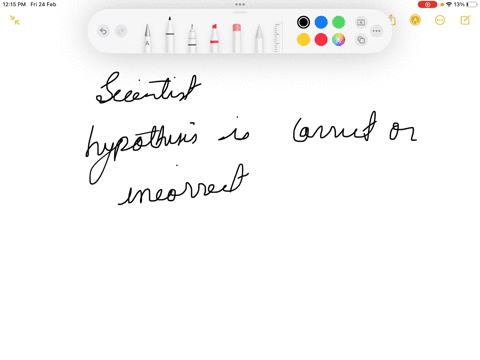 12:15 PM Fri 24 Feb
13%
Scientist
hypothisis is corruct or
incorrect